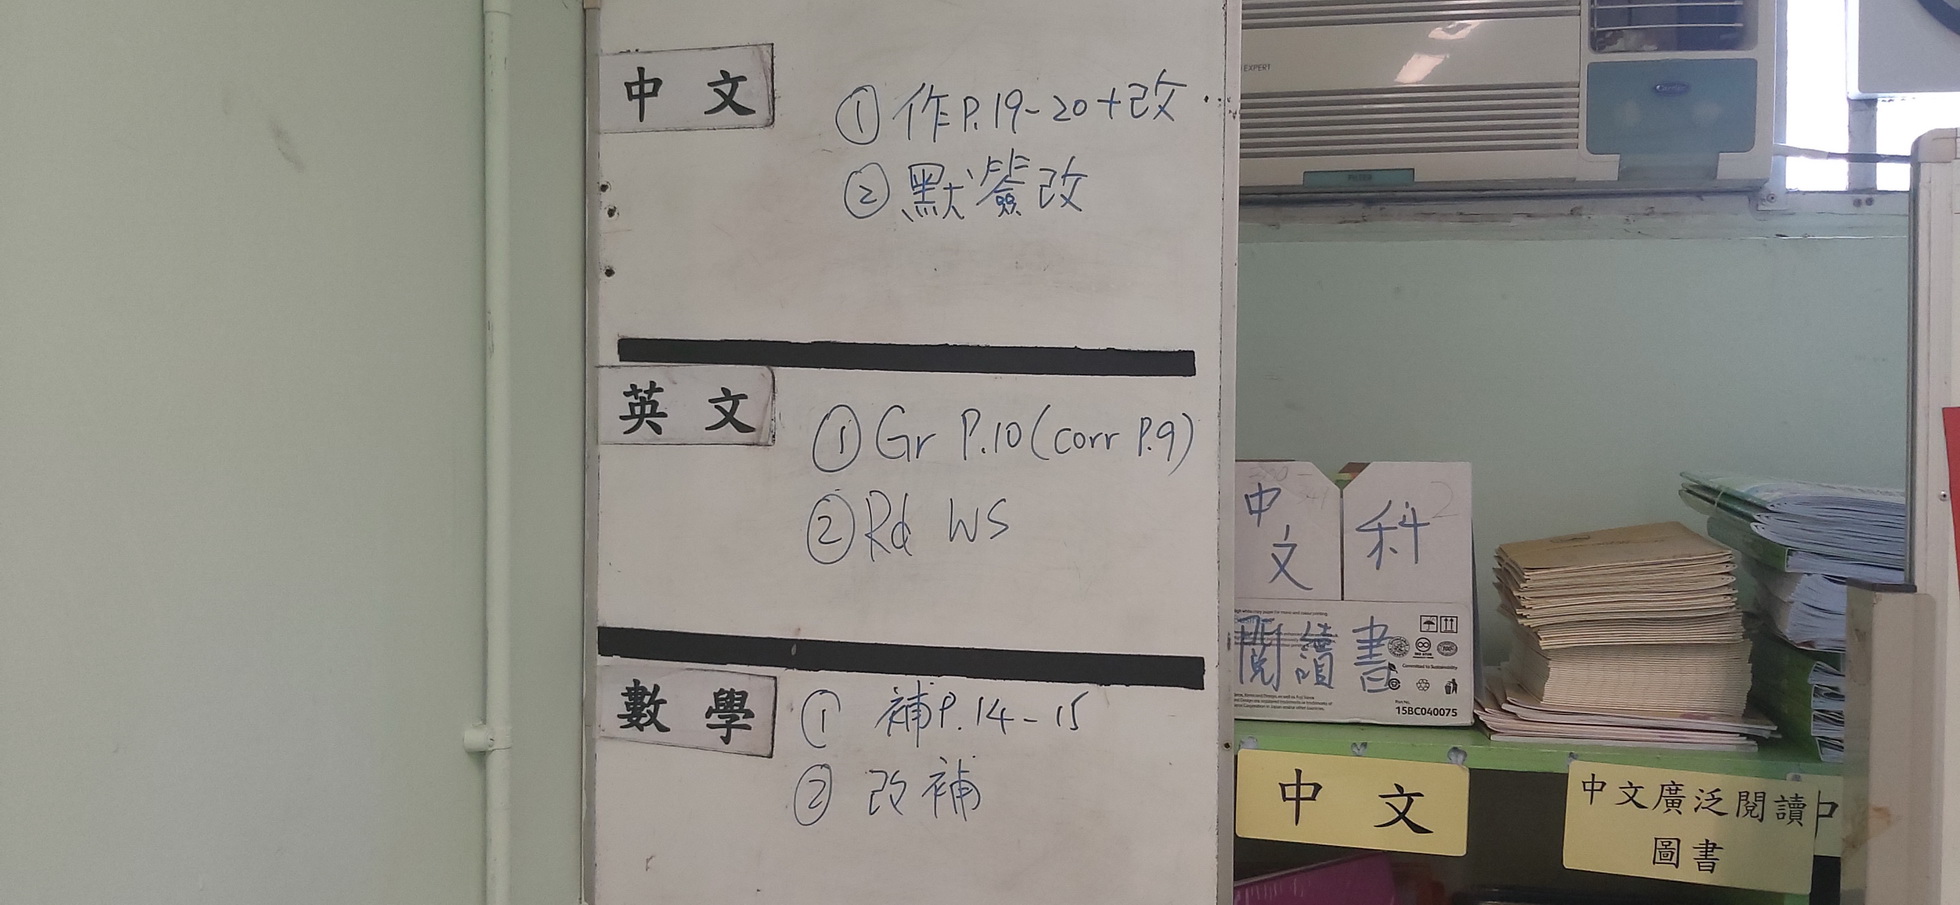 中文
① 作P.19-20+改
② 默簽改
英文
① Gr P.10(corr P.9)
② Rd WS
數學
① 補P.14-15
② 改補
EXPERT
中文科
閱讀書
Committed to Sustainability
15BC040075
中文
中文廣泛閱讀
圖書
中